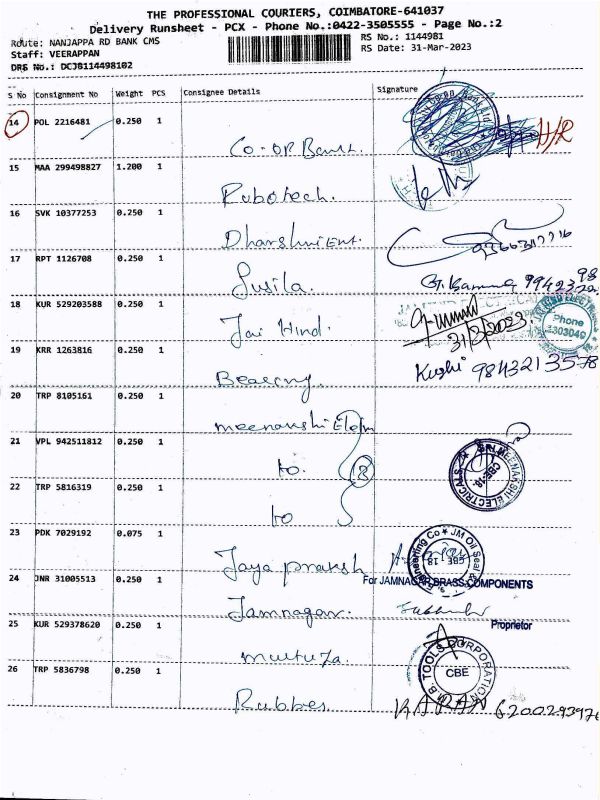 THE PROFESSIONAL COURIERS, COIMBATORE-641037
Delivery Runsheet - PCX - Phone No.:0422-3505555 - Page No.:2
Route: NANJAPPA RD BANK CMS
RS No.: 1144981
Staff: VEERAPPAN
RS Date: 31-Mar-2023
DRS No.: DCJB114498102
S No Consignment No Weight PCS Consignee Details Signature
14 POL 2216481 0.250 1
Co-op Bank.
15 MAA 299498827 1.200 1
Robotech.
16 SVK 10377253 0.250 1
Dharshni Ent.
17 RPT 1126708 0.250 1
Susila.
18 KUR 529203588 0.250 1
Jai Hind.
31/3/2023
Phone
3303049
19 KRR 1263816 0.250 1
Bearing.
9843213578
20 TRP 8105161 0.250 1
21 VPL 942511812 0.250 1
to
MEENAKSHI ELECTRICALS
CBE-18.
22 TRP 5816319 0.250 1
to
23 PDK 7029192 0.075 1
Jaya prakash
Engineering Co ★ JM Oil Seal
CBE 18
24 JNR 31005513 0.250 1
For JAMNAGAR BRASS COMPONENTS
Jamnagar.
Proprietor
25 KUR 529378620 0.250 1
murtuza.
M.B. TOOLS CORPORATION
CBE
26 TRP 5836798 0.250 1
Rubber
KARAN